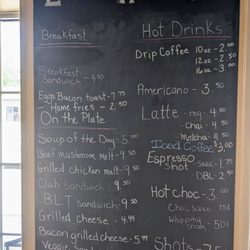 Breakfast
Breakfast
Sandwich - 4.50
Eggs Bacon toast - 7.75
- Home fries - 2.50
On the Plate
Soup of the Day 5.00
Beef mushroom melt - 9.50
Grilled chicken melt - 9.50
Club sandwich - 9.50
BLT sandwich - 9.50
Grilled cheese - 4.99
Bacon grilled cheese - 5.99
Veggie
Hot Drinks
Drip Coffee 10oz - 2.00
12oz - 2.50
16oz - 3.00
Americano - 3.50
Latte - reg - 4.00
- Chai - 4.50
- Matcha - 4.50
Iced Coffee 3.00
Espresso
Shot
DBL - 2.50
Hot choc - 3.00
Choc sauce 75¢
Whipping
cream - 50¢
Shots